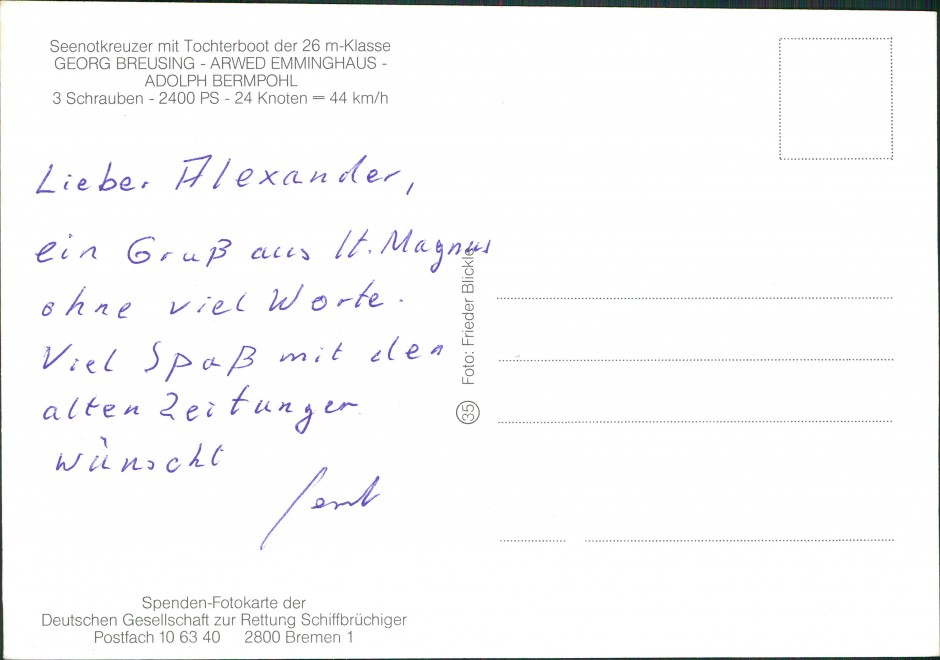 Seenotkreuzer mit Tochterboot der 26 m-Klasse
GEORG BREUSING - ARWED EMMINGHAUS -
ADOLPH BERMPOHL
3 Schrauben - 2400 PS - 24 Knoten = 44 km/h
Lieber Alexander,
ein Gruß aus St. Magnus
ohne viel Worte.
Viel Spaß mit den
alten Zeitungen
wünscht
Foto: Frieder Blickle
35
Spenden-Fotokarte der
Deutschen Gesellschaft zur Rettung Schiffbrüchiger
Postfach 10 63 40 2800 Bremen 1